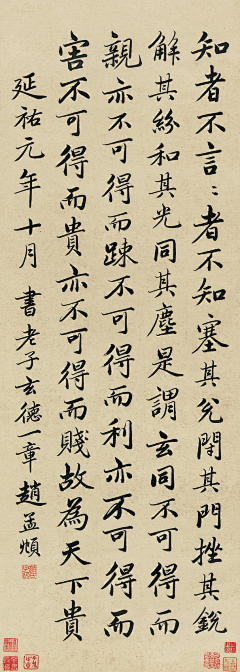 知者不言〻者不知塞其兊閉其門挫其銳
解其紛和其光同其塵是謂玄同不可得而
親亦不可得而踈不可得而利亦不可得而
害不可得而貴亦不可得而賤故為天下貴
延祐元年十月書老子玄德一章趙孟頫